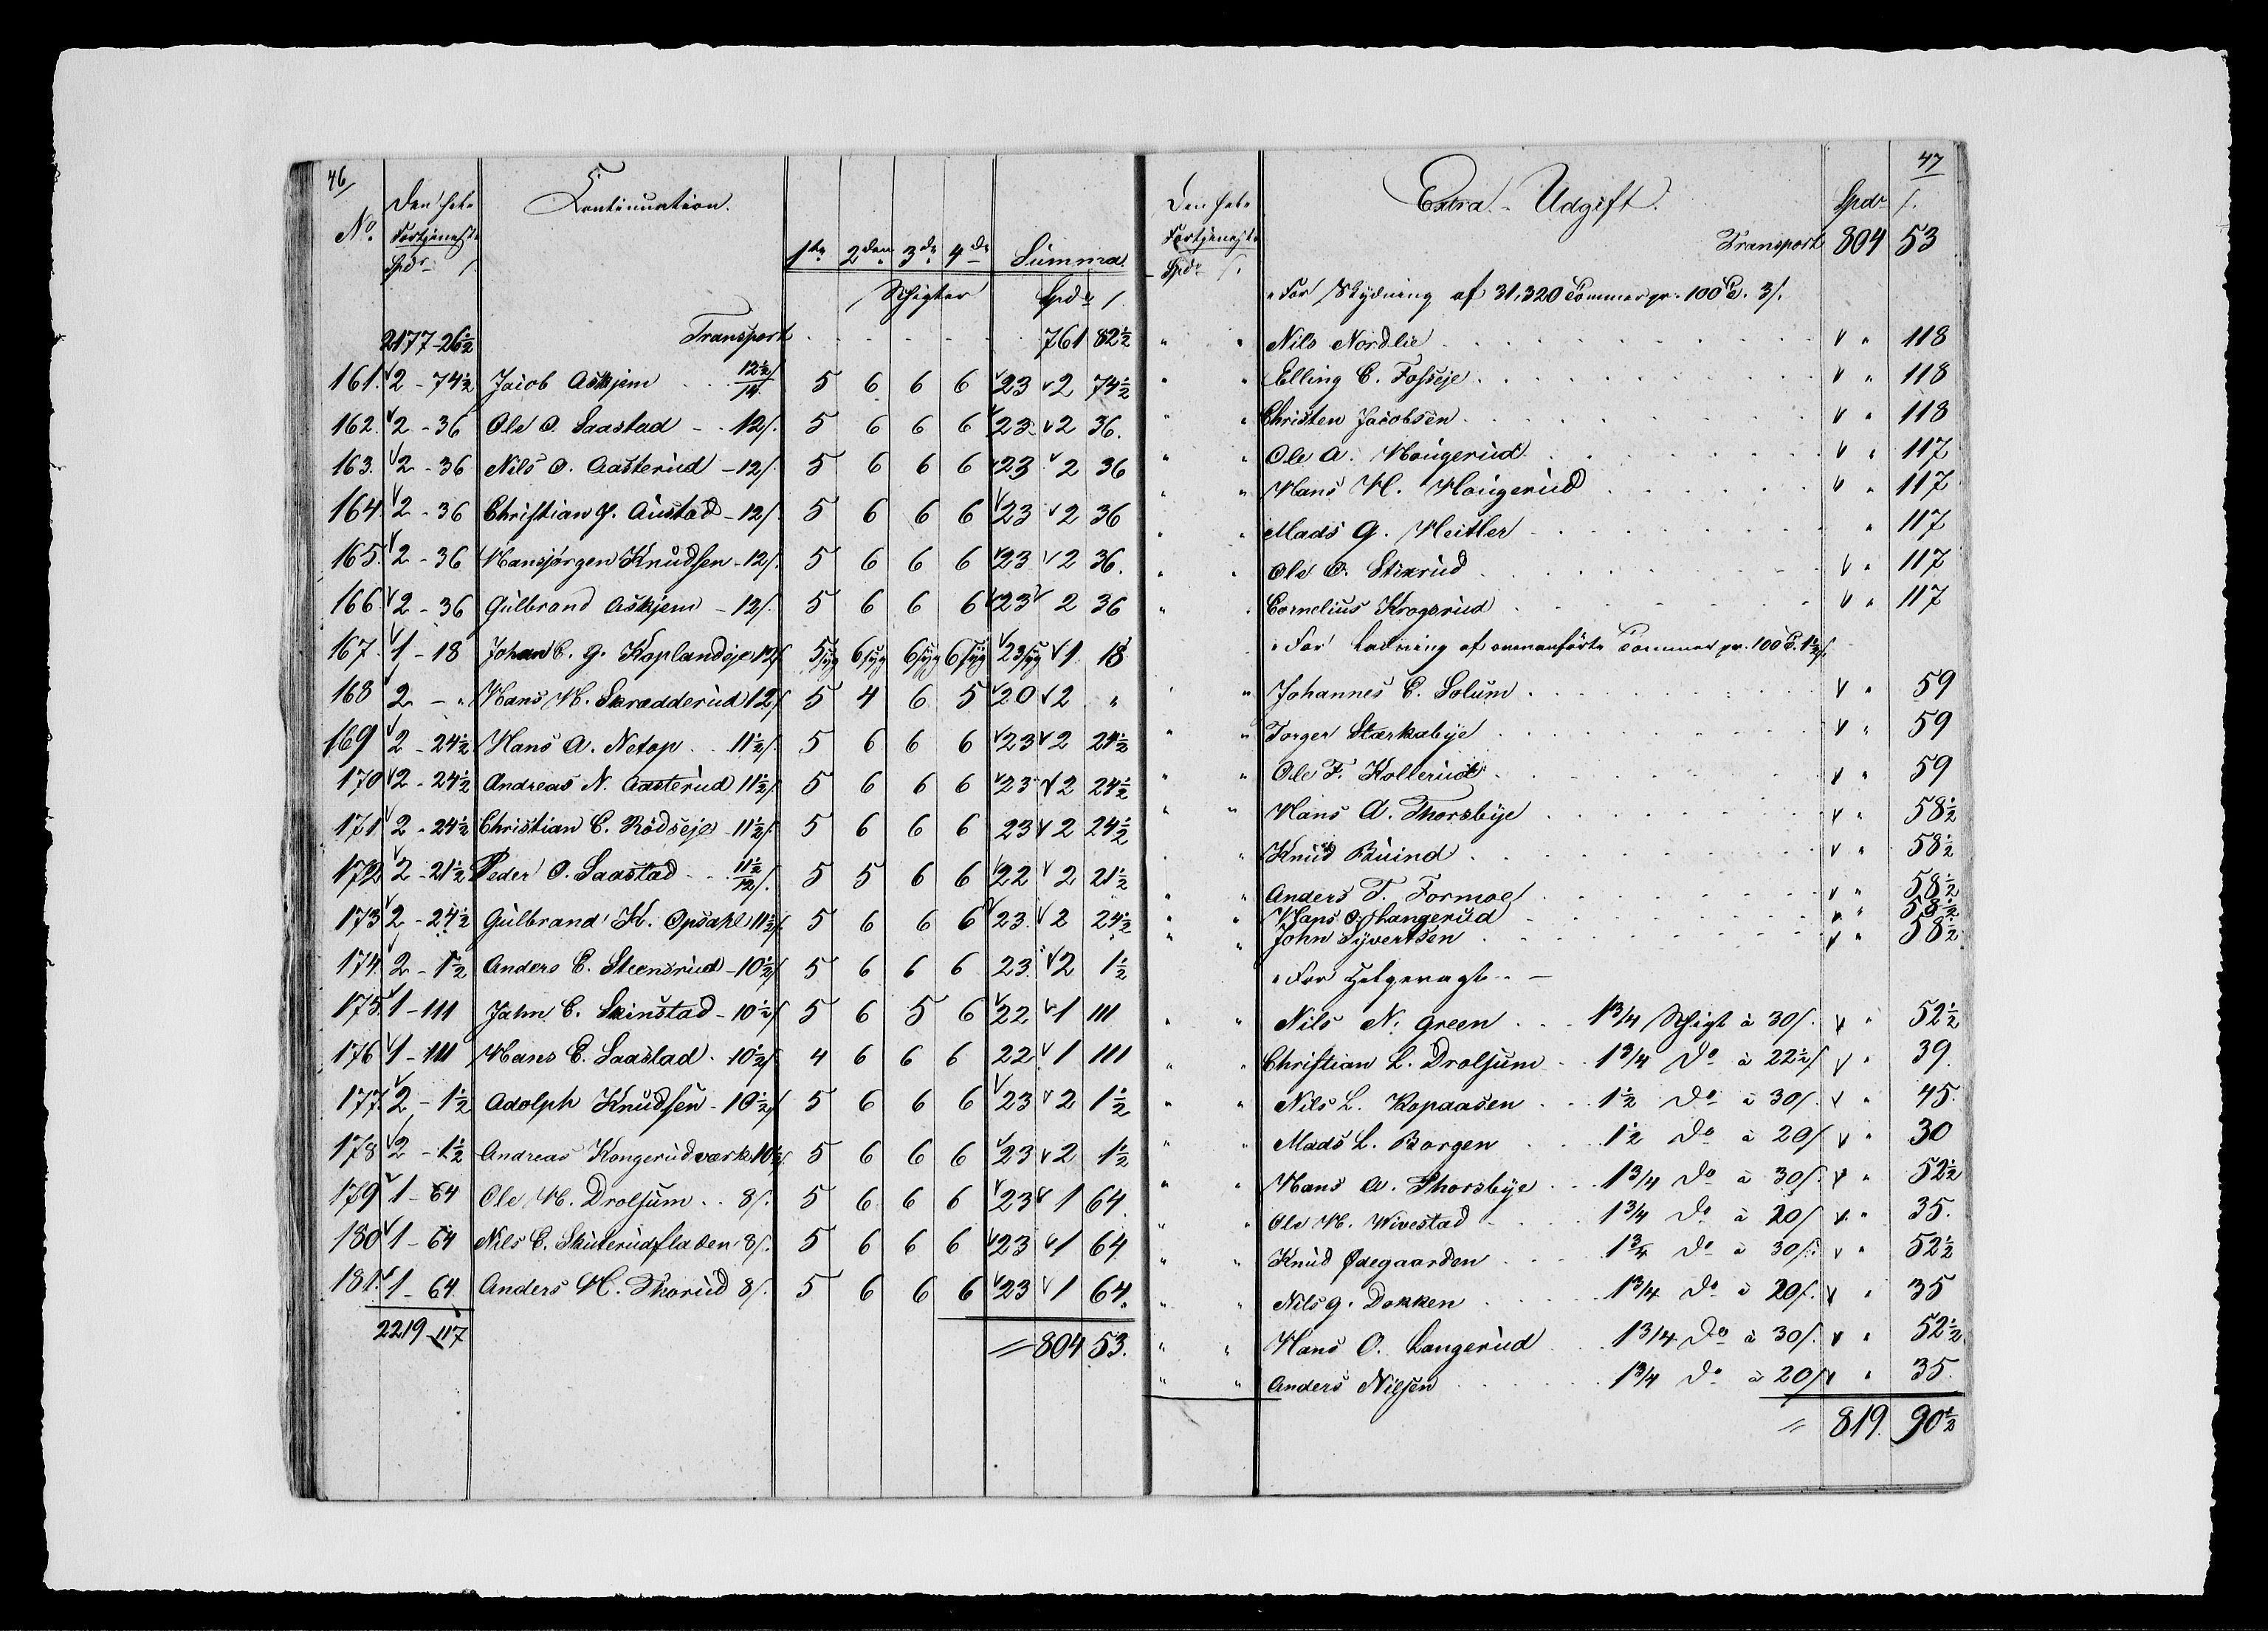 46/
No. Den hele Fortjeneste Spdr /. Continuation. 1ste 2den 3de 4de Summa
Schigter Spdr /.
2177-26½ Transport 761 82½
161. 2 - 74½ Jacob Askjem 12½/14 5 6 6 6 23 2 74½
162. 2 - 36 Ole O. Saastad - 12/. 5 6 6 6 23 2 36.
163. 2 - 36 Nils O. Aasterud - 12/. 5 6 6 6 23 2 36
164. 2 - 36 Christian J. Austad - 12/. 5 6 6 6 23 2 36
165. 2 - 36 Hansjørgen Knudsen - 12/. 5 6 6 6 23 2 36.
166. 2 - 36 Gulbrand Askjem - 12/. 5 6 6 6 23 2 36
167. 1 - 18 Johan C. G. Koplandeje 12/. 5 syg 6 syg 6 syg 6 syg 23 syg 1 18
168 2 - " Hans H. Skradderud 12/. 5 4 6 5 20 2 "
169 2 - 24½ Hans A. Netop 11½/. 5 6 6 6 23 2 24½
170 2 - 24½ Andreas N. Aasterud 11½/. 5 6 6 6 23 2 24½
171 2 - 24½ Christian C. Rödseje - 11½/. 5 6 6 6 23 2 24½
172 2 - 21½ Peder O. Saastad 11½/12/. 5 5 6 6 22 2 21½
173 2 - 24½ Gulbrand K. Opsahl 11½/. 5 6 6 6 23. 2 24½
174. 2 - 1½ Anders E. Steensrud - 10½/. 5 6 6 6 23. 2 1½
175. 1 - 111 Jahn C. Skinstad - 10½/. 5 6 5 6 22 1 111
176 1 - 111 Hans E. Saastad - 10½/. 4 6 6 6 22. 1 111
177. 2 - 1½ Adolph Knudsen - 10½/. 5 6 6 6 23 2 1½
178 2 - 1½ Andreas Kongerudværk 10½/. 5 6 6 6 23 2 1½
179 1 - 64 Ole H. Drolsum 8/. 5 6 6 6 23 1 64.
180 1 - 64 Nils C. Skuterudfladen 8/. 5 6 6 6 23 1 64
181. 1 - 64. Anders H. Skorud 8/. 5 6 6 6 23 1 64.
2219 - 117 = 804 53.
47
Den hele Fortjeneste Spdr /. Extra - Udgift. Spdr /.
Transport 804 53
" For Skydning af 31,320 Tommer pr. 100 T. 3/.
" " Nils Nordlie " 118
" " Elling C. Fosseje " 118
" " Christen Jacobsen " 118
" " Ole A. Hougerud " 117
" " Hans H. Hougerud " 117
" " Mads G. Heitler " 117
" " Ole O. Stixrud " 117
" " Cornelius Krogsrud " 117
" For Ladning af ovenanførte Tommer pr. 100 T. 1½/.
" " Johannes C. Solum " 59
" " Torger Stærkebye " 59
" " Ole F. Kollerud " 59
" " Hans A. Thorsbye " 58½
" " Knud Buind " 58½
" " Anders T. Formoe " 58½
" " Hans O. Langerud " 58½
" " John Syvertsen " 58½
" For Helgevagt -
" " Nils N. Green 1 3/4 Schigt à 30/. " 52½
" " Christian L. Drolsum 1 3/4 Do à 22½/. " 39.
" " Nils L. Kopaasen 1½ Do à 30/. " 45.
" " Mads L. Borgen 1½ Do à 20/. " 30
" " Hans A. Thorsbye 1 3/4 Do à 30/. " 52½
" " Ole H. Wivestad 1 3/4 Do à 20/. " 35.
" " Knud Ødegaarden 1 3/4 Do à 30/. " 52½
" " Nils G. Dokken 1 3/4 Do à 20/. " 35
" " Hans O. Langerud 1 3/4 Do à 30/. " 52½
" " Anders Nilsen 1 3/4 Do à 20/. " 35.
= 819. 90½